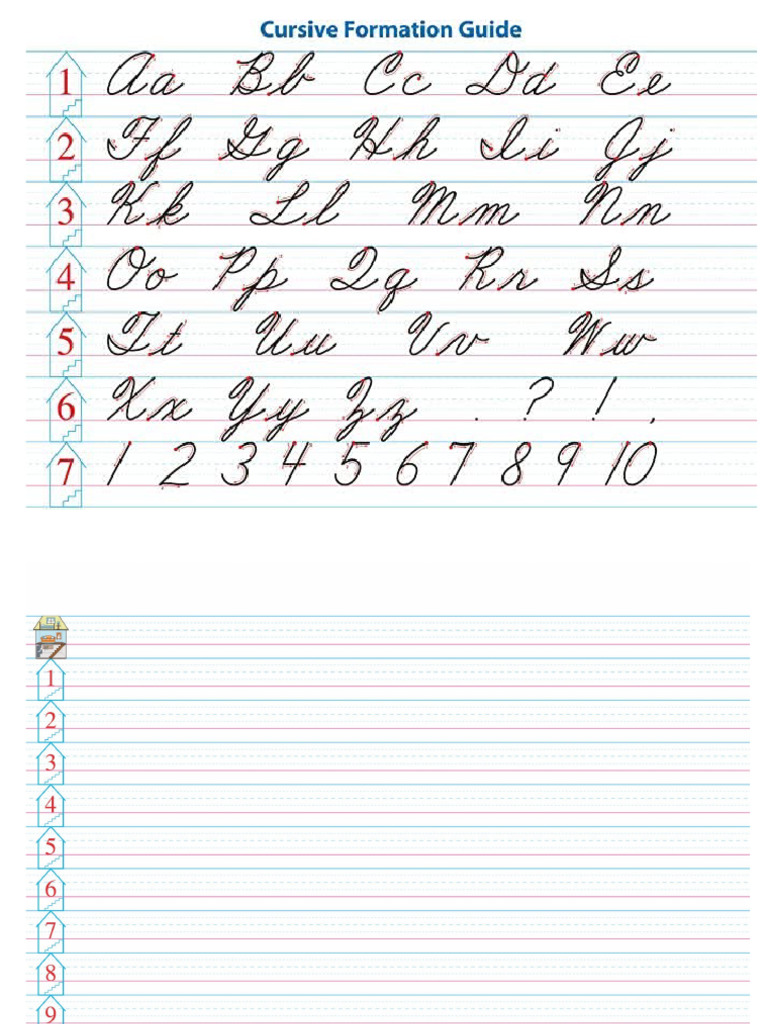 Cursive Formation Guide
1 Aa Bb Cc Dd Ee
2 Ff Gg Hh Ii Jj
3 Kk Ll Mm Nn
4 Oo Pp Qq Rr Ss
5 Tt Uu Vv Ww
6 Xx Yy Zz . ? ! ,
7 1 2 3 4 5 6 7 8 9 10
1
2
3
4
5
6
7
8
9